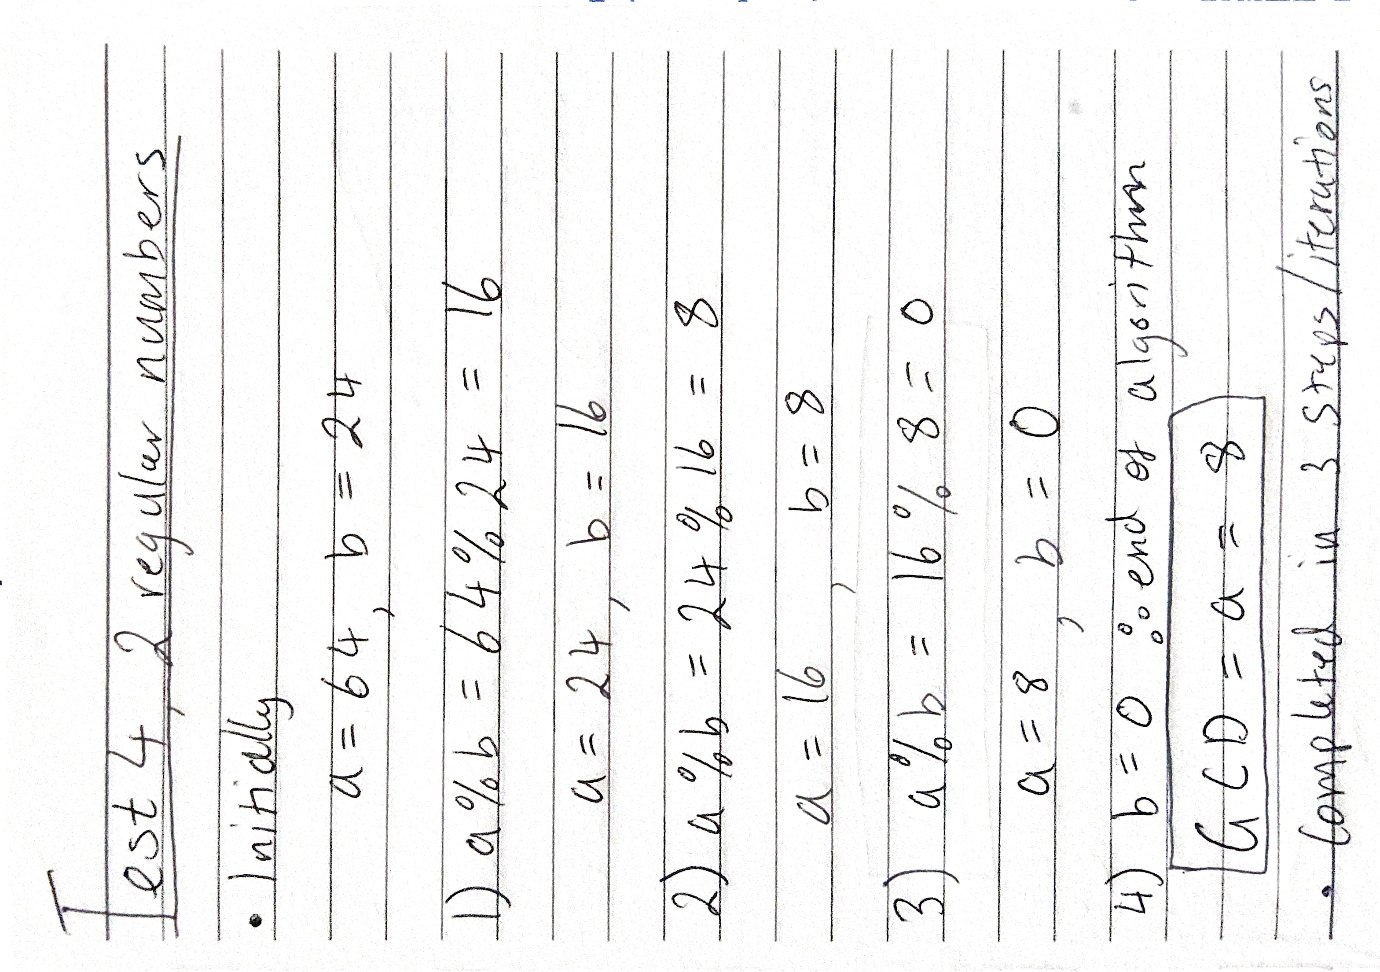 Test 4, 2 regular numbers
• Initially
a = 64, b = 24
1) a%b = 64%24 = 16
a = 24, b = 16
2) a%b = 24%16 = 8
a = 16, b = 8
3) a%b = 16%8 = 0
a = 8, b = 0
4) b = 0 ∴ end of algorithm
GCD = a = 8
• Completed in 3 steps/iterations